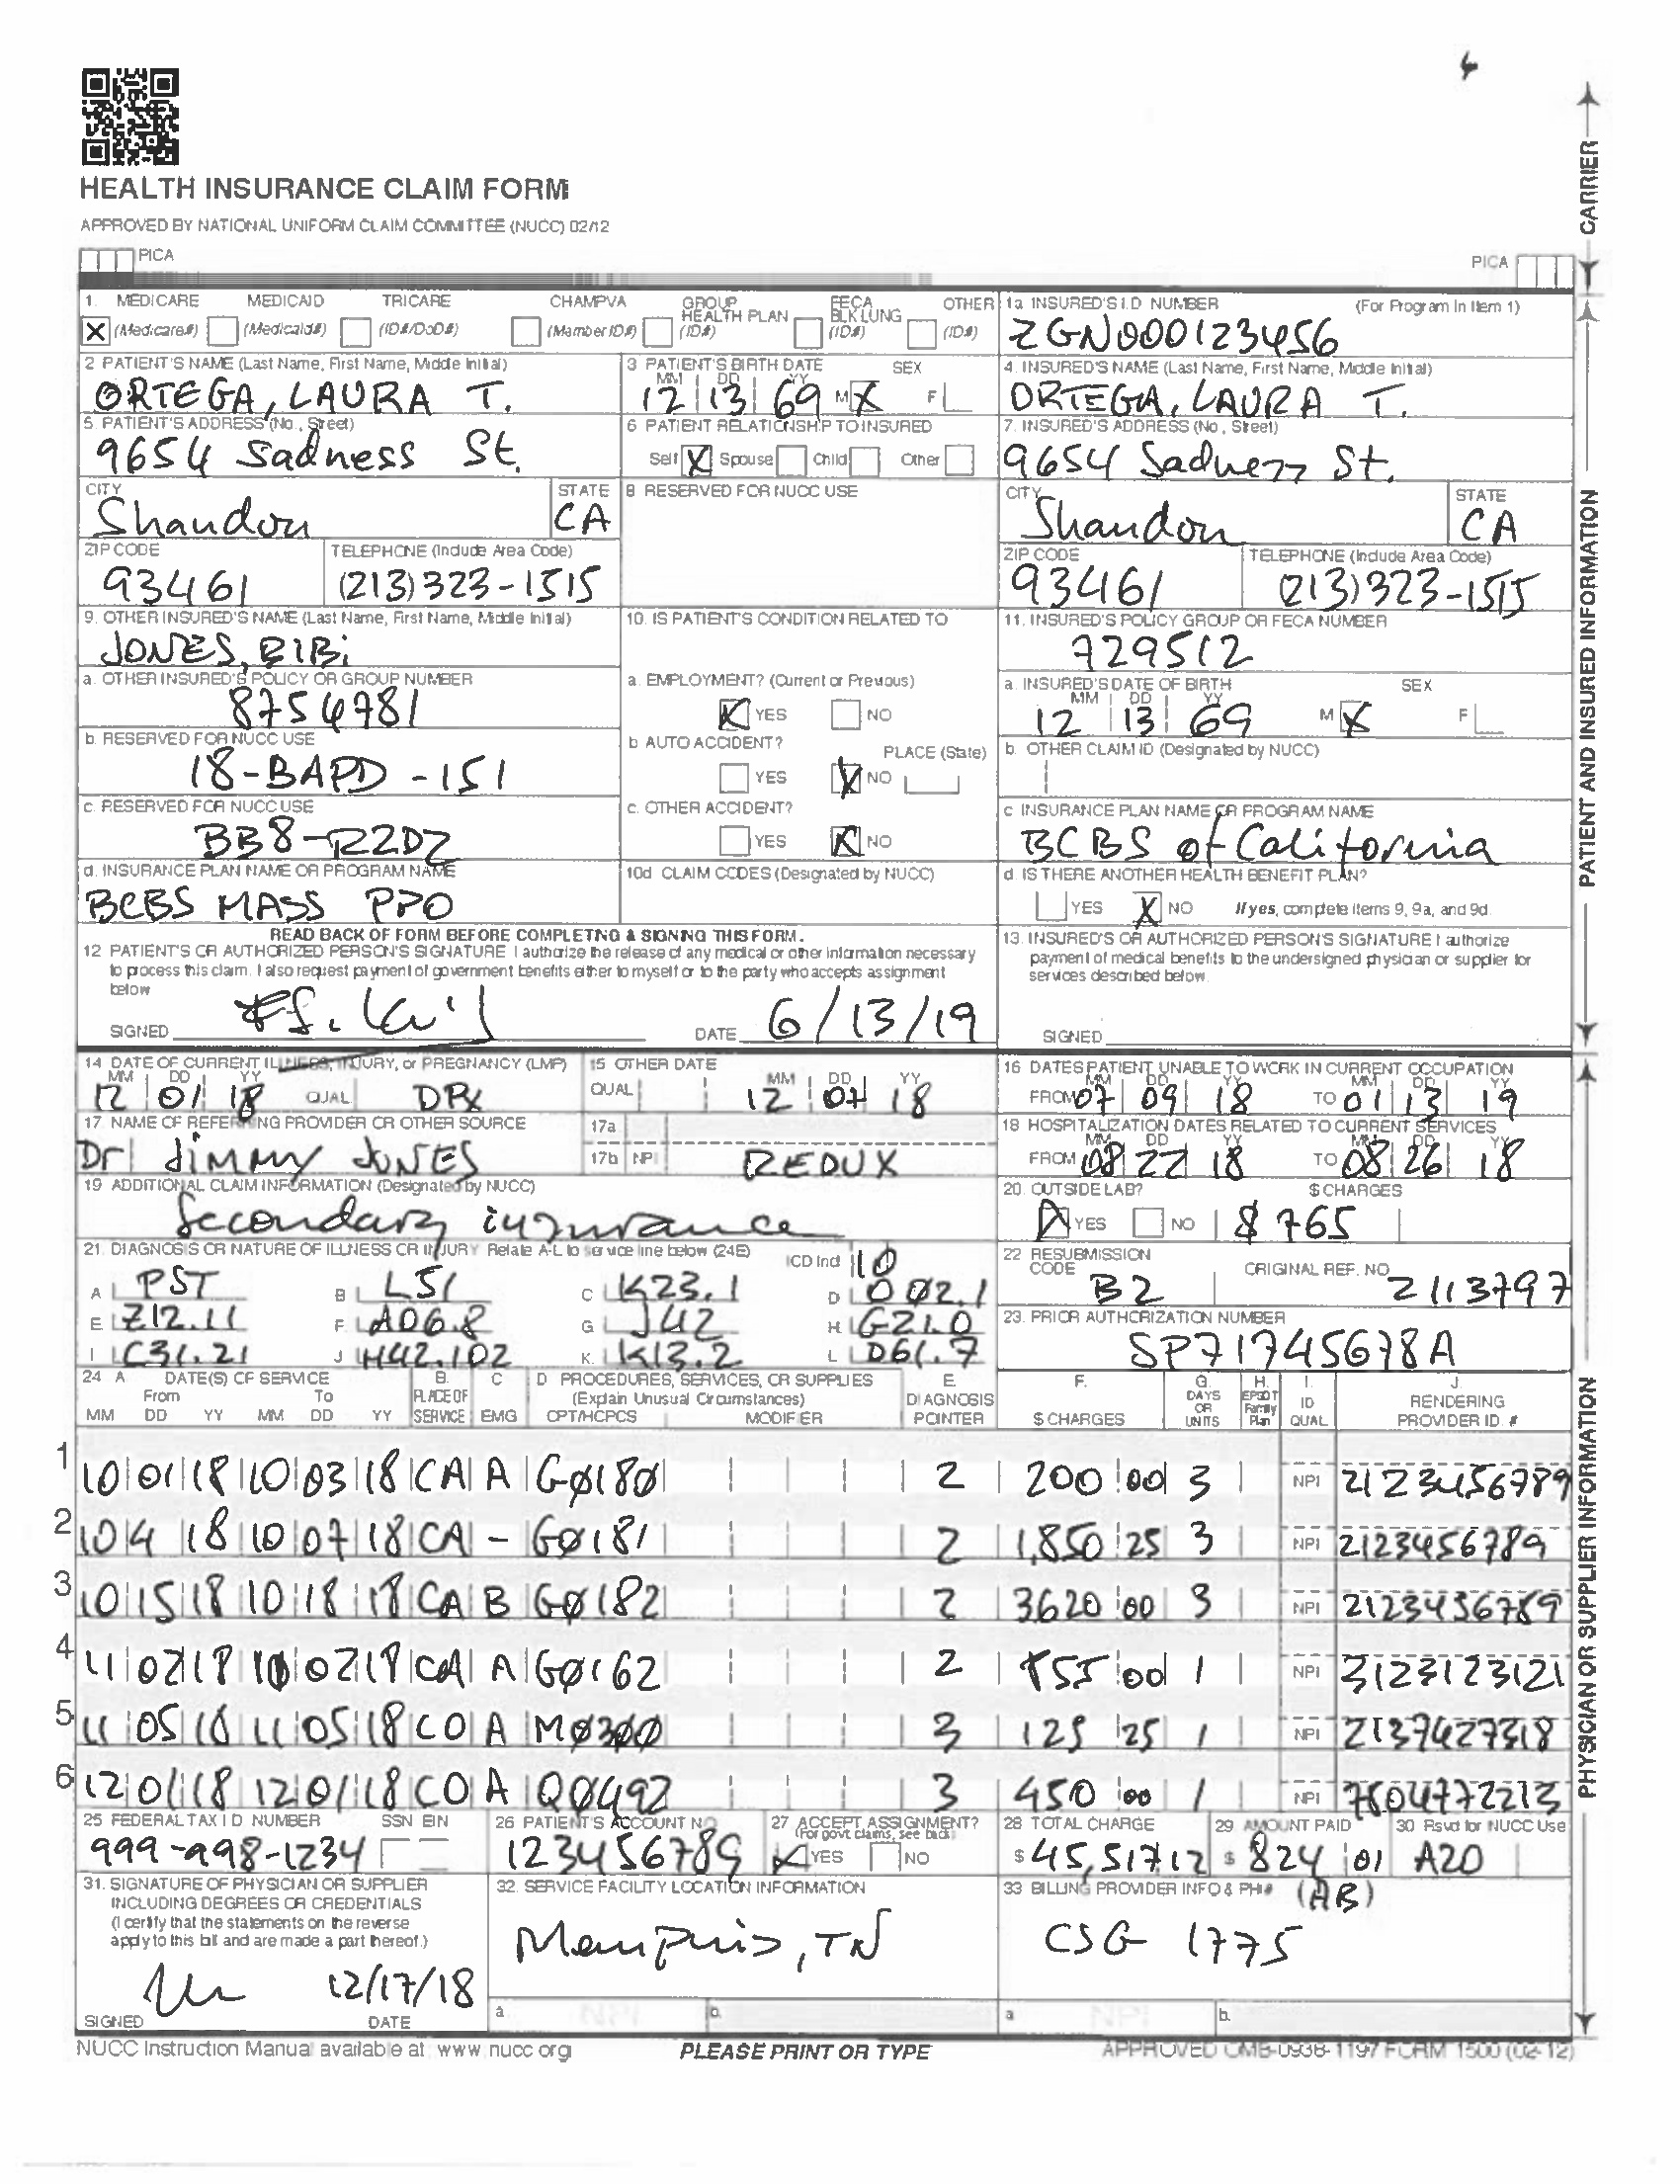 HEALTH INSURANCE CLAIM FORM
APPROVED BY NATIONAL UNIFORM CLAIM COMMITTEE (NUCC) 02/12
PICA
PICA
CARRIER
1. MEDICARE MEDICAID TRICARE CHAMPVA GROUP HEALTH PLAN FECA BLK LUNG OTHER
X (Medicare#) (Medicaid#) (ID#/DoD#) (Member ID#) (ID#) (ID#) (ID#)
1a INSURED'S I.D NUMBER (For Program In Item 1)
ZGN000123456
2 PATIENT'S NAME (Last Name, First Name, Middle Initial)
ORTEGA, LAURA T.
3 PATIENT'S BIRTH DATE SEX
MM DD YY
12 13 69 M X F
4. INSURED'S NAME (Last Name, First Name, Middle Initial)
ORTEGA, LAURA T.
5. PATIENT'S ADDRESS (No., Street)
9654 Sadness St.
6 PATIENT RELATIONSHIP TO INSURED
Self X Spouse Child Other
7. INSURED'S ADDRESS (No, Street)
9654 Sadness St.
CITY STATE
Shandon CA
8 RESERVED FOR NUCC USE
CITY STATE
Shandon CA
ZIP CODE TELEPHONE (Include Area Code)
93461 (213) 323-1515
ZIP CODE TELEPHONE (Include Area Code)
93461 (213) 323-1515
9. OTHER INSURED'S NAME (Last Name, First Name, Middle Initial)
JONES, BIBi
10. IS PATIENT'S CONDITION RELATED TO
11. INSURED'S POLICY GROUP OR FECA NUMBER
729512
a. OTHER INSURED'S POLICY OR GROUP NUMBER
8754781
a. EMPLOYMENT? (Current or Previous)
X YES NO
a. INSURED'S DATE OF BIRTH SEX
MM DD YY
12 13 69 M X F
b. RESERVED FOR NUCC USE
18-BAPD-151
b AUTO ACCIDENT? PLACE (State)
YES X NO
b. OTHER CLAIM ID (Designated by NUCC)
c. RESERVED FOR NUCC USE
BB8-R2D2
c. OTHER ACCIDENT?
YES X NO
c INSURANCE PLAN NAME OR PROGRAM NAME
BCBS of California
d. INSURANCE PLAN NAME OR PROGRAM NAME
BCBS MASS PPO
10d CLAIM CODES (Designated by NUCC)
d. IS THERE ANOTHER HEALTH BENEFIT PLAN?
YES X NO If yes, complete items 9, 9a, and 9d
READ BACK OF FORM BEFORE COMPLETING & SIGNING THIS FORM.
12 PATIENT'S OR AUTHORIZED PERSON'S SIGNATURE I authorize the release of any medical or other information necessary
to process this claim. I also request payment of government benefits either to myself or to the party who accepts assignment
below
SIGNED DATE 6/13/19
13. INSURED'S OR AUTHORIZED PERSON'S SIGNATURE I authorize
payment of medical benefits to the undersigned physician or supplier for
services described below.
SIGNED
PATIENT AND INSURED INFORMATION
14 DATE OF CURRENT ILLNESS, INJURY, or PREGNANCY (LMP)
MM DD YY
12 01 18 QUAL
15 OTHER DATE
QUAL MM DD YY
12 07 18
16 DATES PATIENT UNABLE TO WORK IN CURRENT OCCUPATION
MM DD YY MM DD YY
FROM 07 09 18 TO 01 13 19
17. NAME OF REFERRING PROVIDER OR OTHER SOURCE
Dr JIMMY JONES
17a
17b NPI REDUX
18 HOSPITALIZATION DATES RELATED TO CURRENT SERVICES
MM DD YY MM DD YY
FROM 08 22 18 TO 08 26 18
19 ADDITIONAL CLAIM INFORMATION (Designated by NUCC)
Secondary insurance
20. OUTSIDE LAB? $ CHARGES
X YES NO $ 765
21. DIAGNOSIS OR NATURE OF ILLNESS OR INJURY Relate A-L to service line below (24E) ICD Ind 10
A PST B L51 C K23.1 D 002.1
E Z12.11 F A06.8 G J42 H G21.0
I C31.21 J H42.102 K. K13.2 L D61.7
22 RESUBMISSION CODE ORIGINAL REF. NO
B2 2113797
23. PRIOR AUTHORIZATION NUMBER
SP71745678A
24 A DATE(S) OF SERVICE B. PLACE OF SERVICE C EMG D PROCEDURES, SERVICES, OR SUPPLIES E. DIAGNOSIS POINTER F. $ CHARGES G. DAYS OR UNITS H. EPSDT Family Plan I. ID QUAL J. RENDERING PROVIDER ID. #
From To (Explain Unusual Circumstances)
MM DD YY MM DD YY CPT/HCPCS MODIFIER
1 10 01 18 10 03 18 CA A G0180 2 200 00 3 NPI 2123456789
2 10 4 18 10 07 18 CA - G0181 2 1,850 25 3 NPI 2123456789
3 10 15 18 10 18 18 CA B G0182 2 3620 00 3 NPI 2123456789
4 11 02 18 02 18 CA A G0162 2 855 00 1 NPI 3123123121
5 11 05 18 11 05 18 CO A M0300 3 125 25 1 NPI 2137427318
6 12 01 18 12 01 18 CO A Q0492 3 450 00 1 NPI 7804772213
25 FEDERAL TAX I D NUMBER SSN EIN
999-998-1234
26 PATIENT'S ACCOUNT NO
123456789
27 ACCEPT ASSIGNMENT?
(For govt claims, see back)
X YES NO
28 TOTAL CHARGE
$ 45,517 12
29 AMOUNT PAID
$ 824 01
30 Rsvd for NUCC Use
A20
31. SIGNATURE OF PHYSICIAN OR SUPPLIER
INCLUDING DEGREES OR CREDENTIALS
(I certify that the statements on the reverse
apply to this bill and are made a part thereof.)
12/17/18
SIGNED DATE
32. SERVICE FACILITY LOCATION INFORMATION
Memphis, TN
a. b.
33 BILLING PROVIDER INFO & PH# (AB)
CSG 1775
a b.
PHYSICIAN OR SUPPLIER INFORMATION
NUCC Instruction Manual available at: www.nucc.org
PLEASE PRINT OR TYPE
APPROVED OMB-0938-1197 FORM 1500 (02-12)